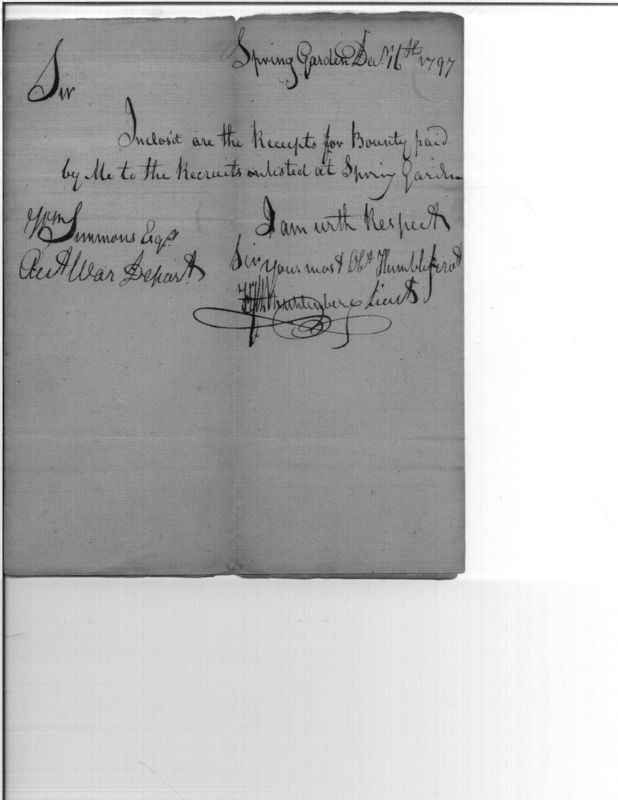 Spring Garden Decr. 16th 1797
Sir
Inclos'd are the Receipts for Bounty paid
by Me to the Recruits enlisted at Spring Garden
I am with Respect
Sir your most Obt Humble Servt
Muhlenberg Lieut
Wm Simmons Esqr.
Acct War Depart